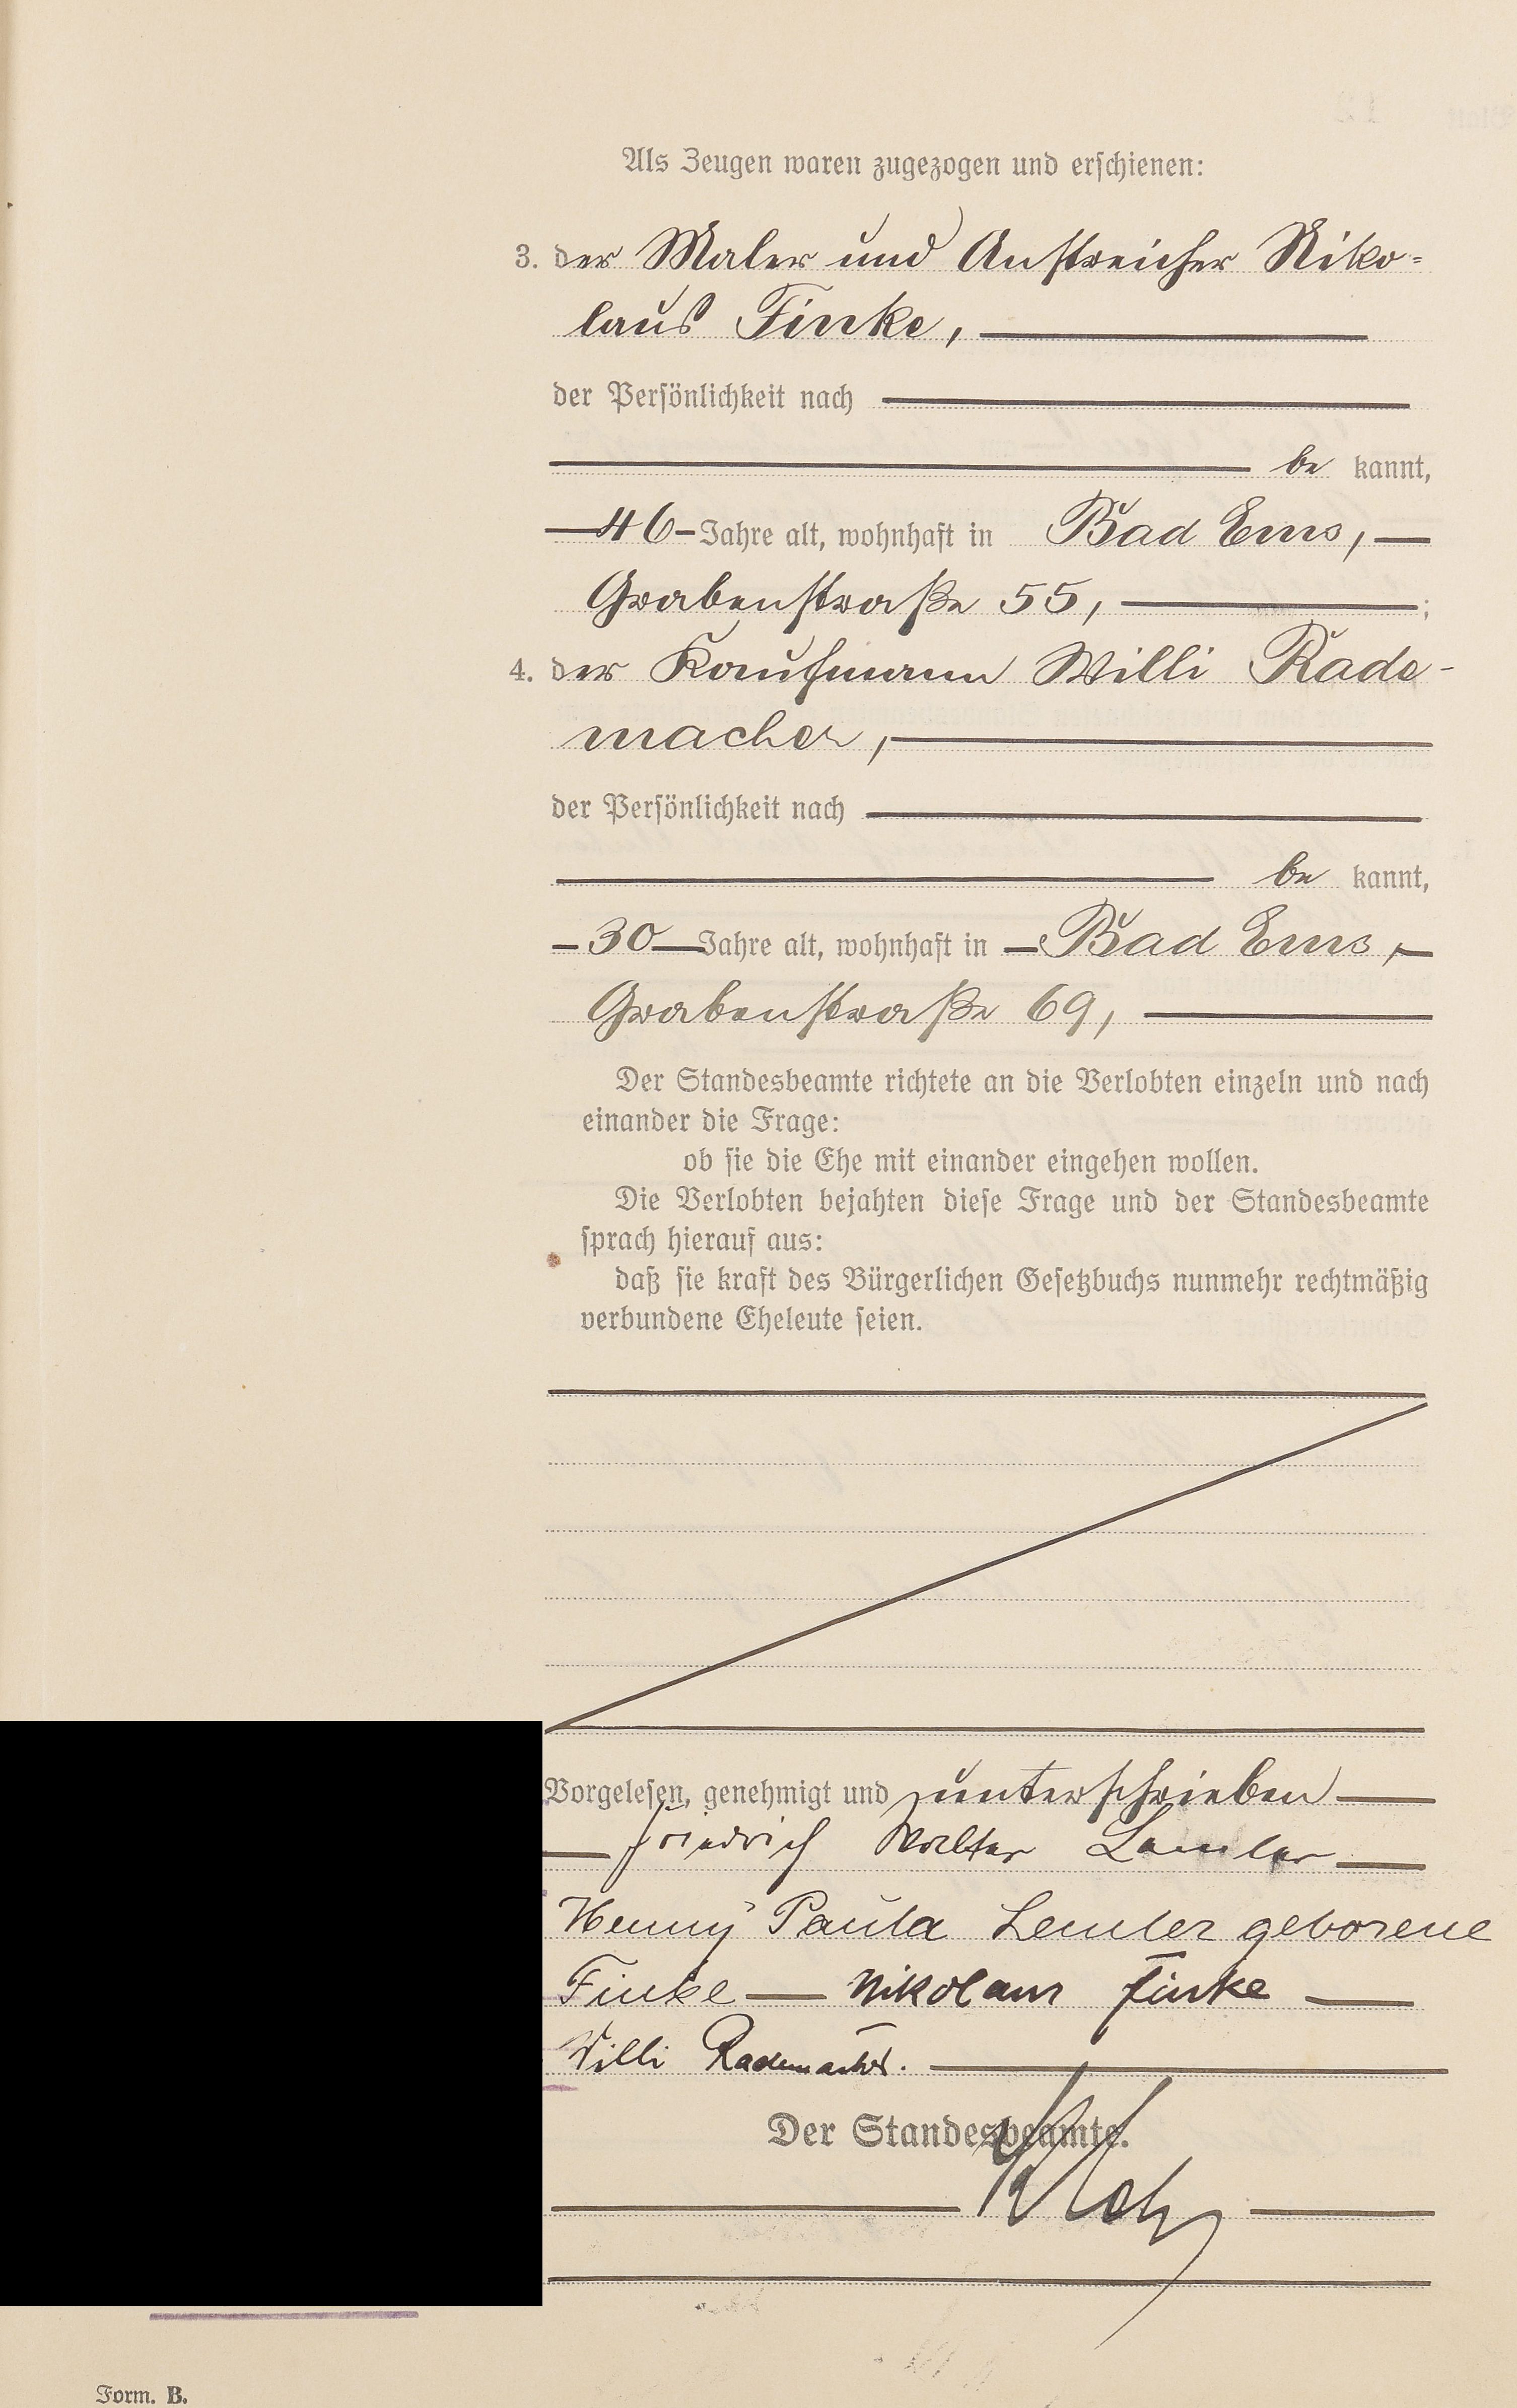 Als Zeugen waren zugezogen und erschienen:
3. der Maler und Anstreicher Niko=
laus Finke,
der Persönlichkeit nach
be kannt,
46 Jahre alt, wohnhaft in Bad Ems,
Grabenstraße 55, ;
4. der Kaufmann Willi Rade-
macher,
der Persönlichkeit nach
be kannt,
30 Jahre alt, wohnhaft in Bad Ems,
Grabenstraße 69,
Der Standesbeamte richtete an die Verlobten einzeln und nach
einander die Frage:
ob sie die Ehe mit einander eingehen wollen.
Die Verlobten bejahten diese Frage und der Standesbeamte
sprach hierauf aus:
daß sie kraft des Bürgerlichen Gesetzbuchs nunmehr rechtmäßig
verbundene Eheleute seien.
Vorgelesen, genehmigt und unterschrieben
Friedrich Walter Lemler
Henny Paula Lemler geborene
Finke — Nikolaus Finke
Willi Rademacher.
Der Standesbeamte.
Form. B.